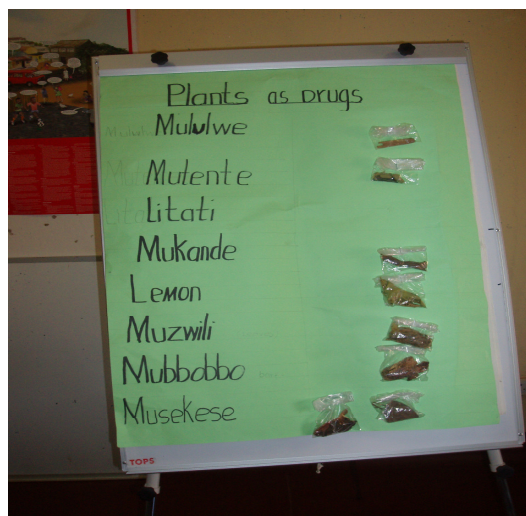 Plants as Drugs
Mululwe
Mutente
Litati
Mukande
Lemon
Muzwili
Mubbobbo
Musekese
TOPS